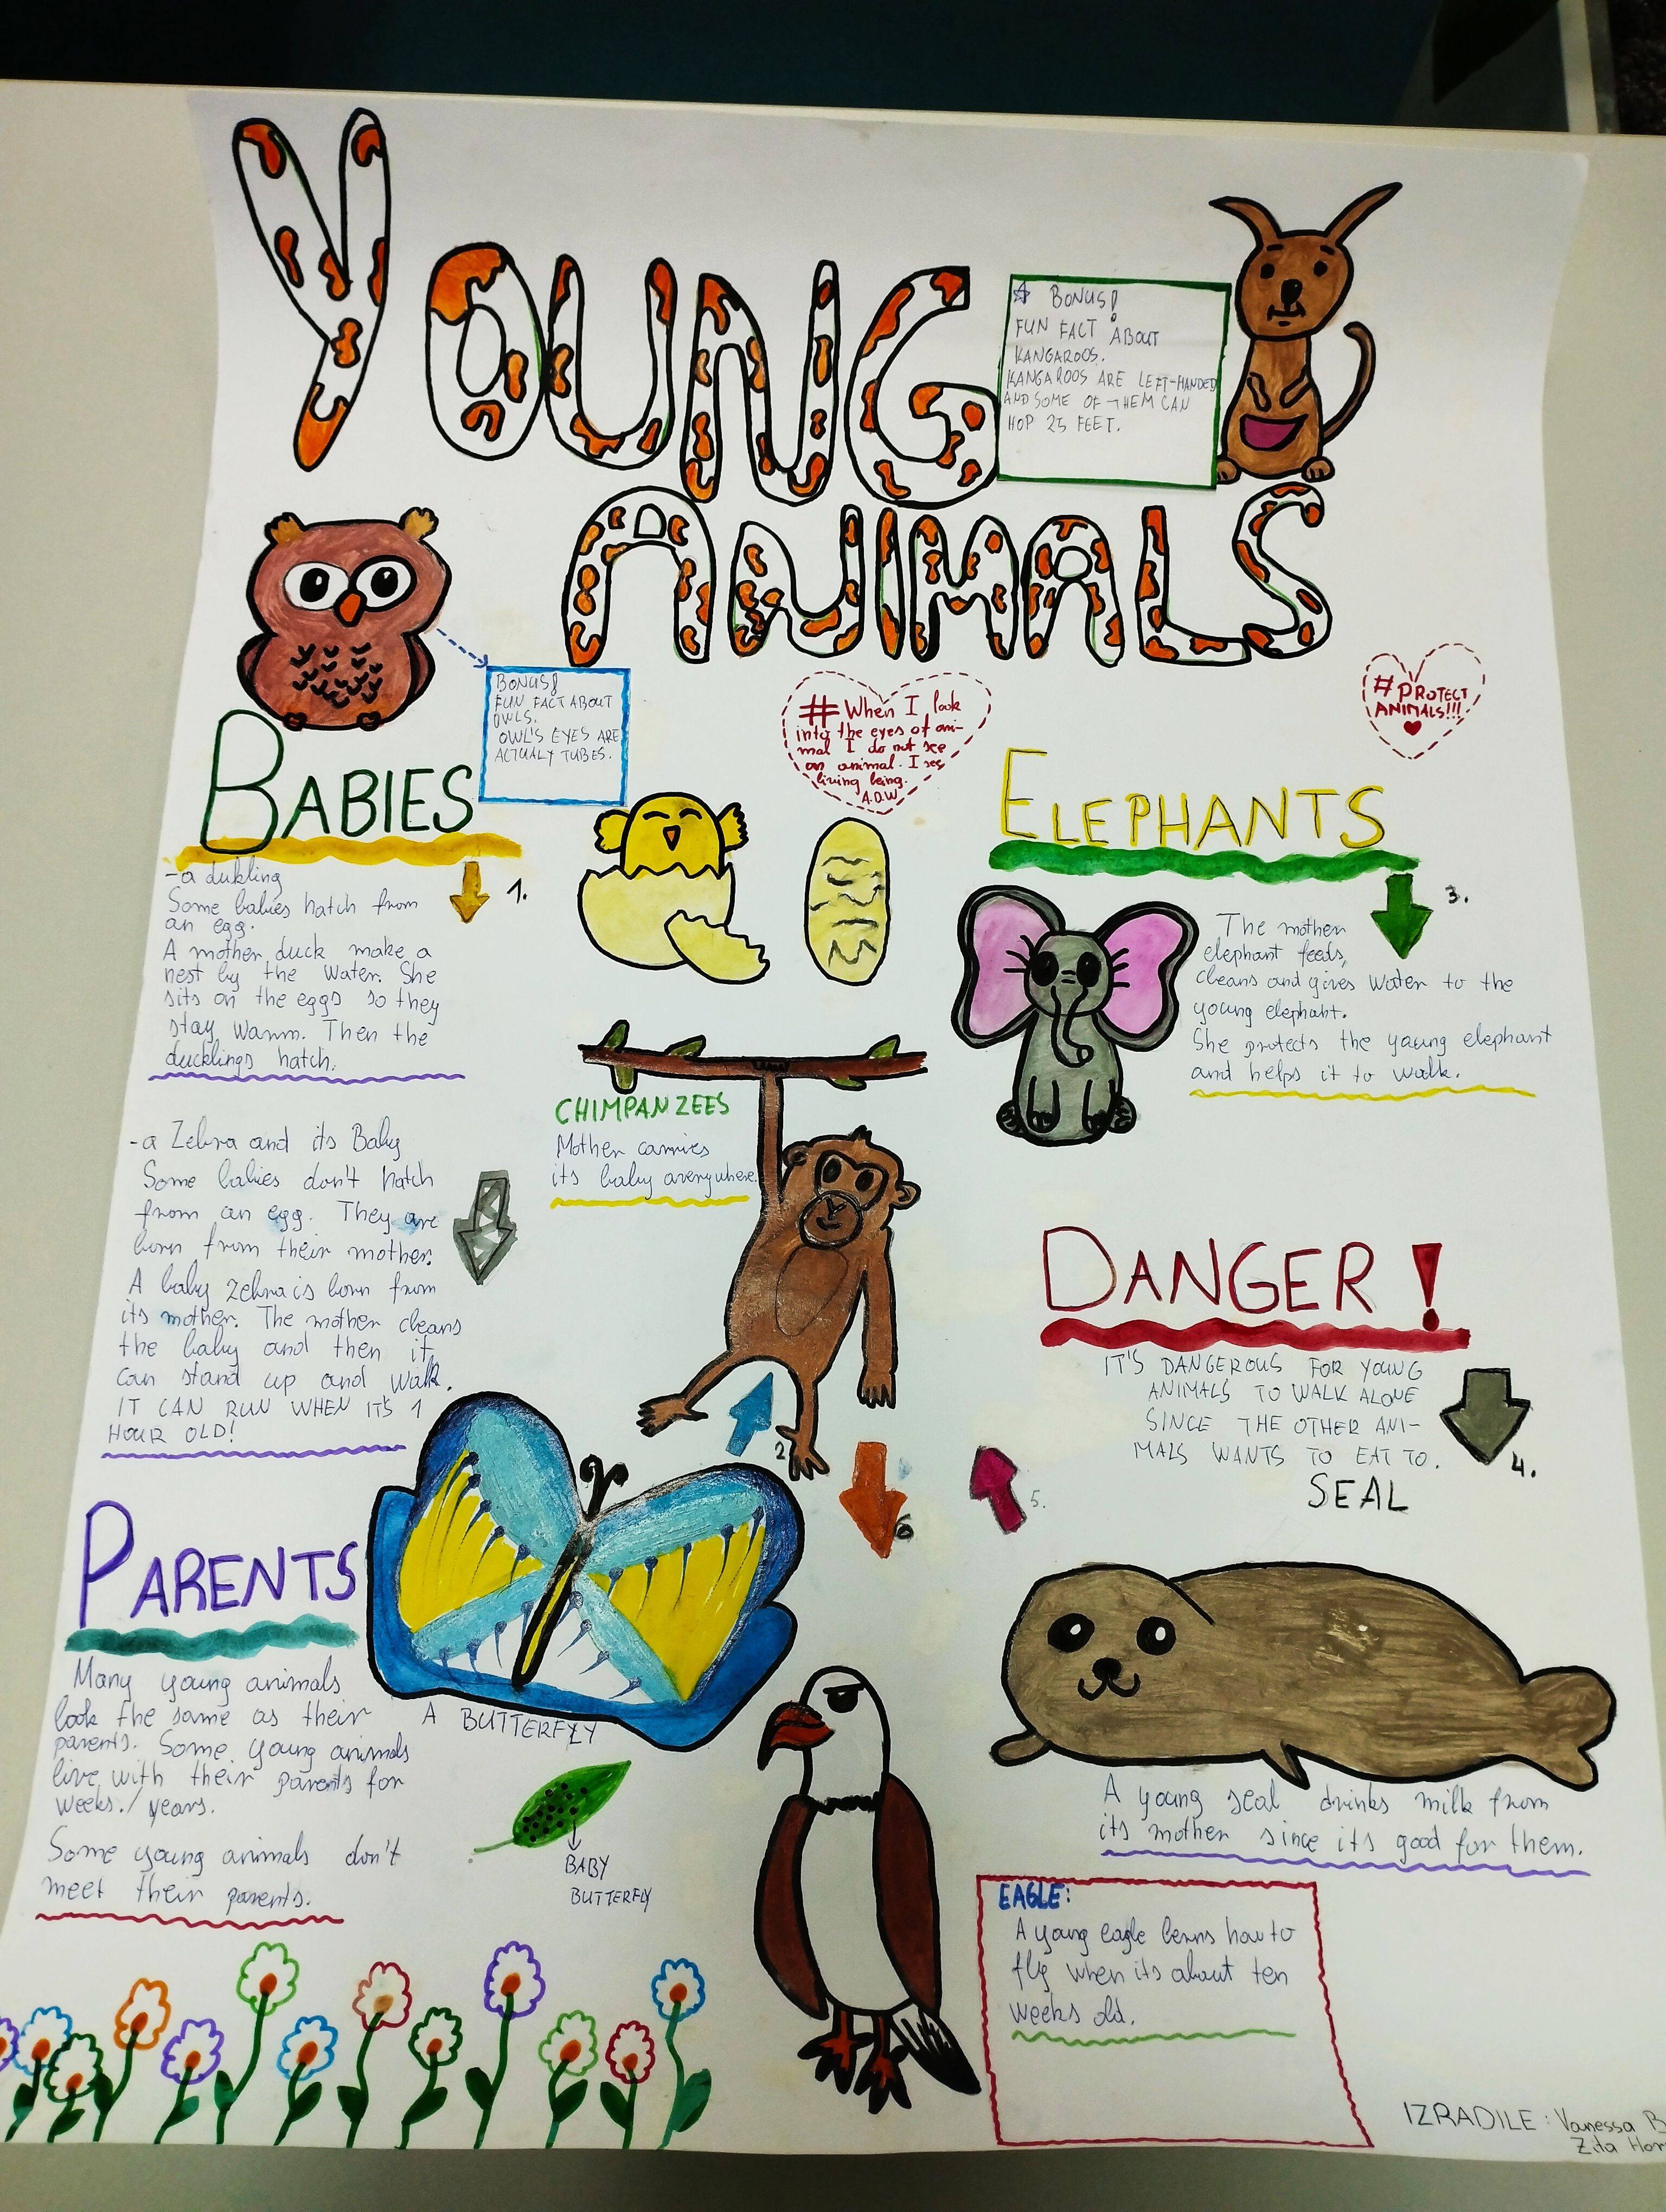 YOUNG
ANIMALS
☆ BONUS!
FUN FACT ABOUT
KANGAROOS.
KANGAROOS ARE LEFT-HANDED
AND SOME OF THEM CAN
HOP 25 FEET.
BONUS!
FUN FACT ABOUT
OWLS.
OWL'S EYES ARE
ACTUALY TUBES.
#When I look
into the eyes of ani-
mal I do not see
an animal. I see
living being.
A.D.W
#PROTECT
ANIMALS!!!
BABIES
1.
-a dukling
Some babies hatch from
an egg.
A mother duck make a
nest by the water. She
sits on the eggs so they
stay warm. Then the
ducklings hatch.
-a Zebra and its Baby
Some babies don't hatch
from an egg. They are
born from their mother.
A baby zebra is born from
its mother. The mother cleans
the baby and then it
can stand up and walk.
IT CAN RUN WHEN IT'S 1
HOUR OLD!
CHIMPANZEES
Mother carries
its baby averywhere.
2
ELEPHANTS
3.
The mother
elephant feeds,
cleans and gives water to the
young elephant.
She protects the young elephant
and helps it to walk.
DANGER!
IT'S DANGEROUS FOR YOUNG
ANIMALS TO WALK ALONE
SINCE THE OTHER ANI-
MALS WANTS TO EAT TO.
4.
SEAL
5.
6
A young seal drinks milk from
its mother since its good for them.
PARENTS
Many young animals
look the same as their
parents. Some young animals
live with their parents for
weeks./years.
Some young animals don't
meet their parents.
A BUTTERFLY
BABY
BUTTERFLY
EAGLE:
A young eagle learns how to
fly when its about ten
weeks old.
IZRADILE: Vanessa B
Zita Hor